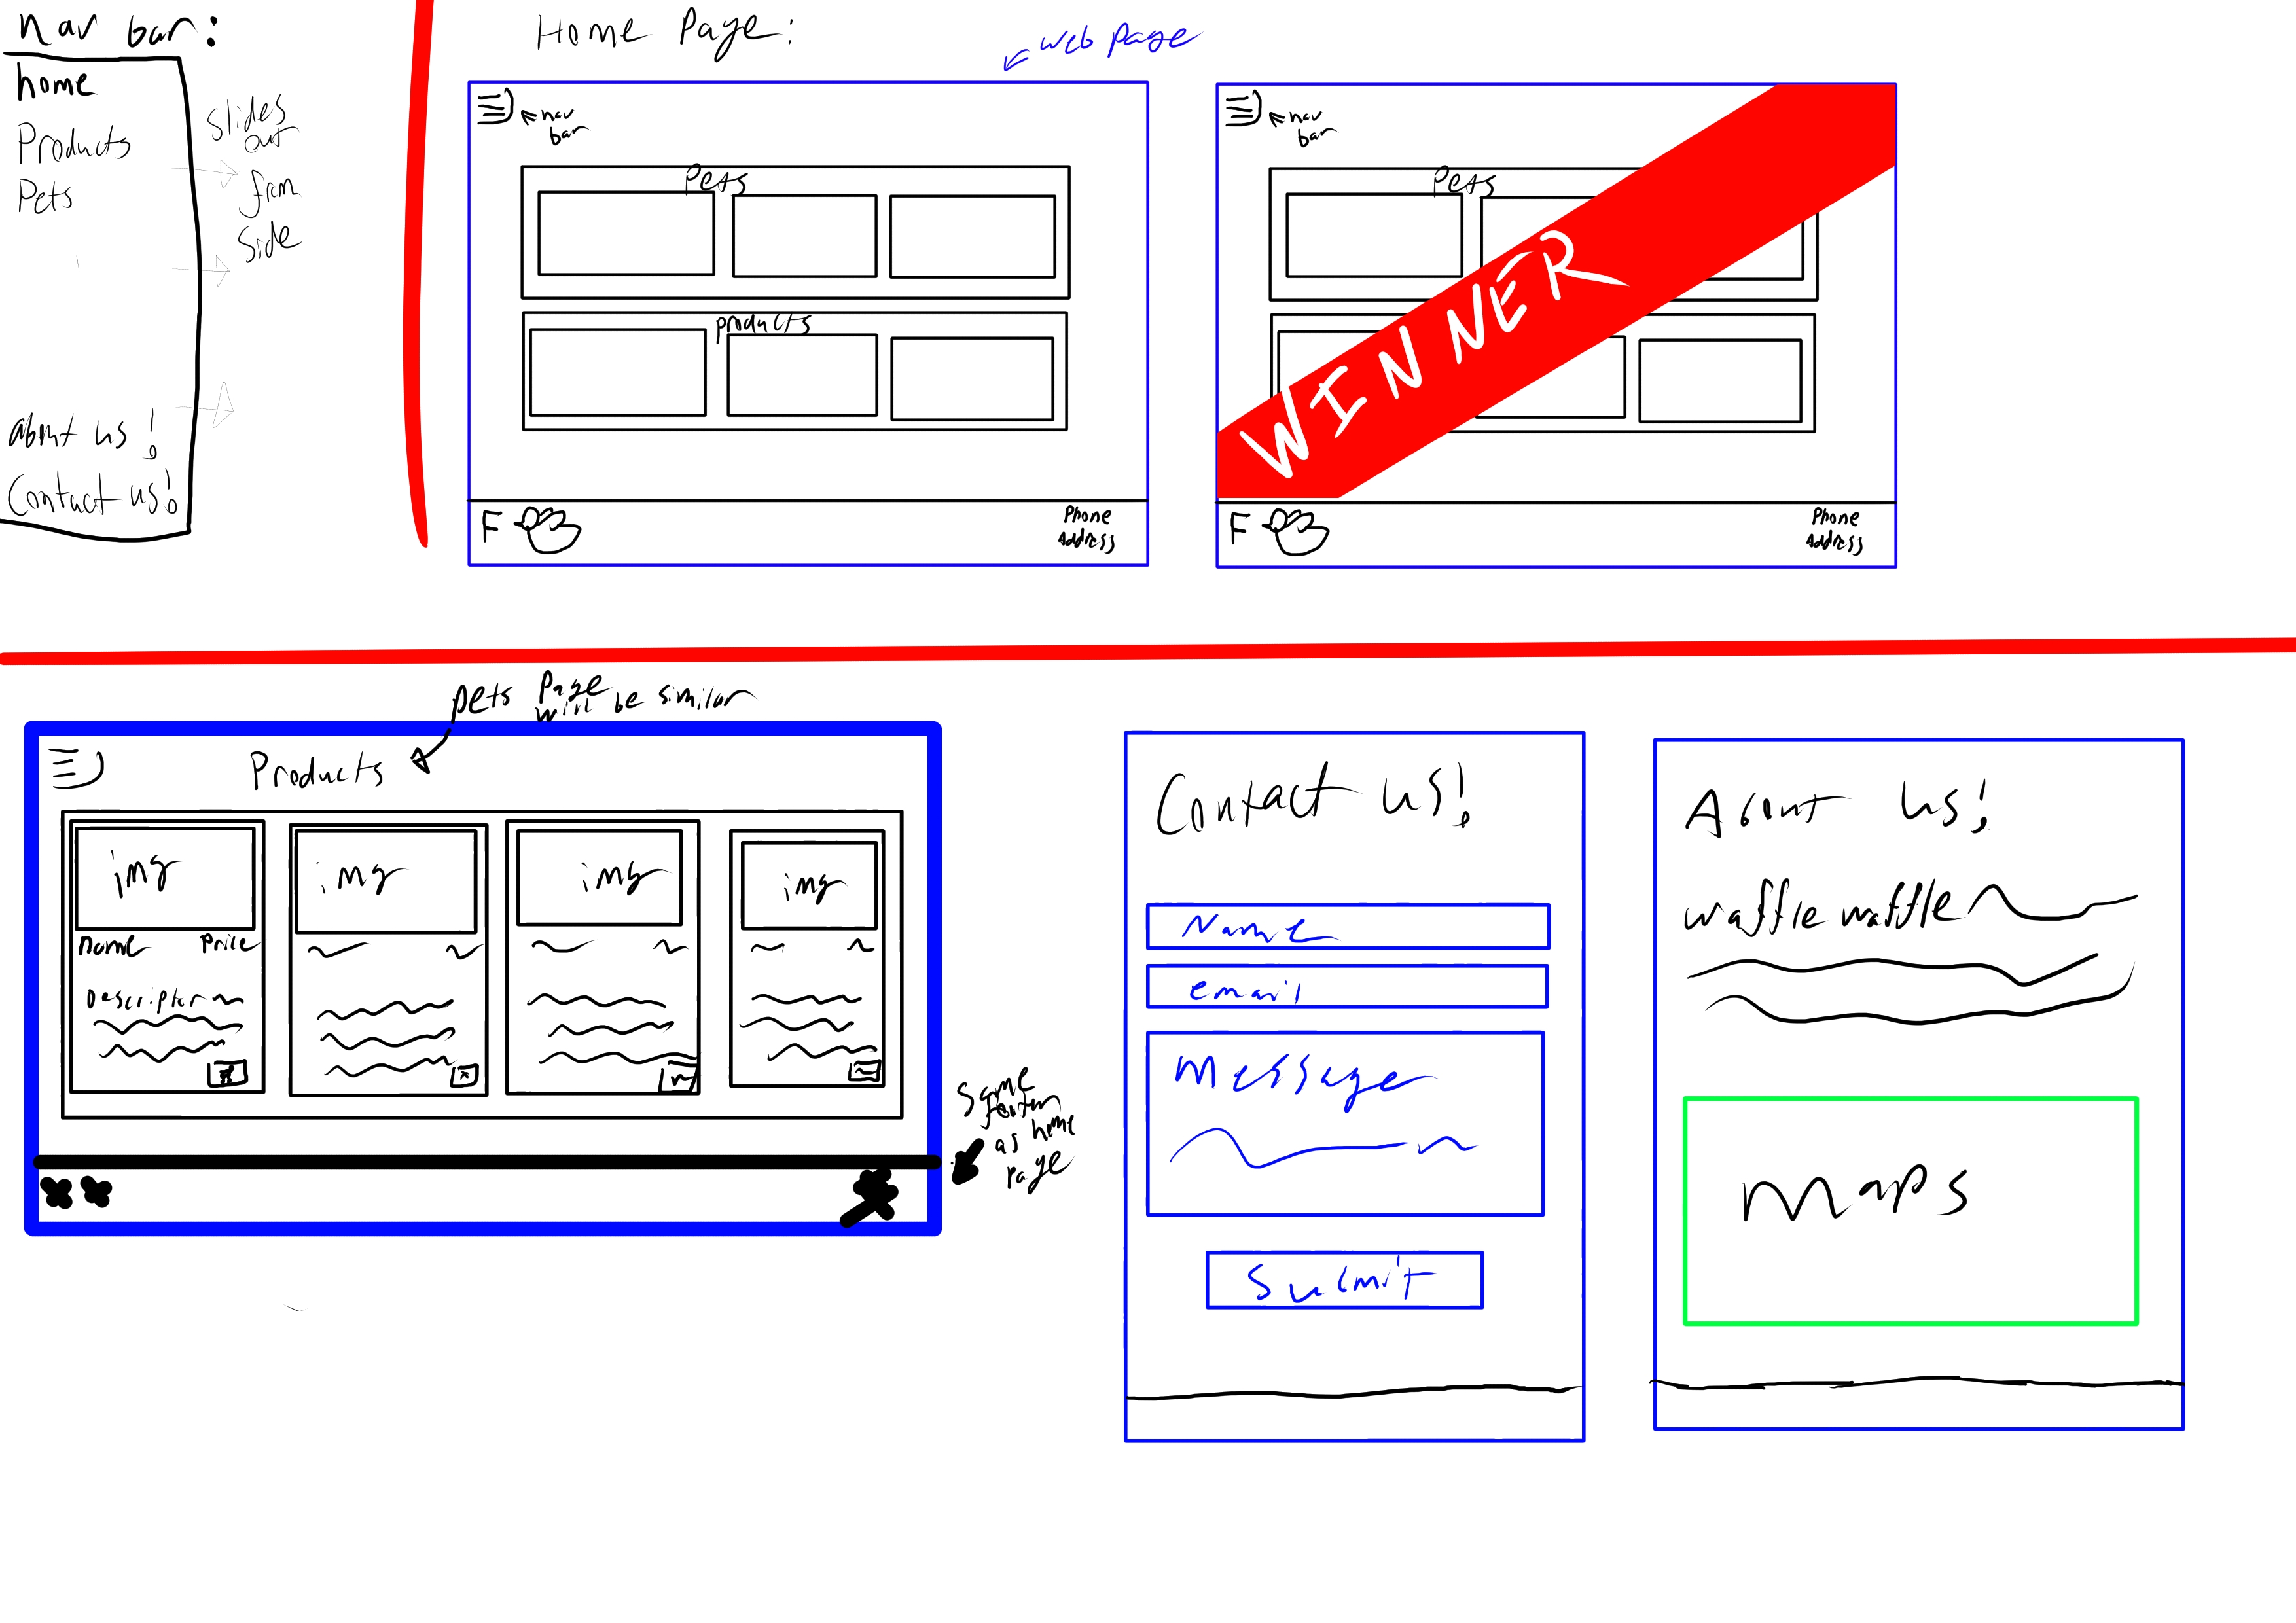 nav bar:
home
Products
Pets
about us!
Contact us!
slides
out
from
side
Home Page:
web page
nav
bar
Pets
products
F
Phone
Address
nav
bar
Pets
WINNER
F
Phone
Address
pets Page
will be similar
Products
img
img
img
img
Name Price
Description
same
footer
as home
page
Contact us!
Name
email
Message
Submit
About us!
waffle waffle
Maps